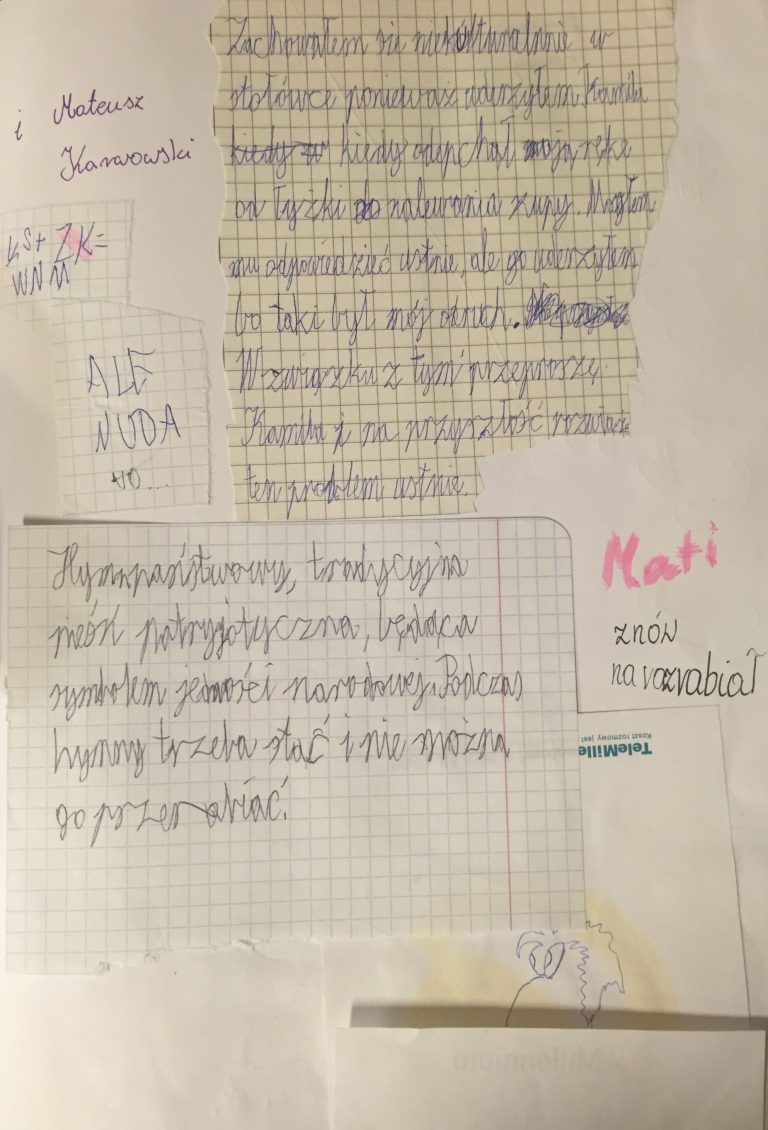 i Mateusz
Karwowski
KS+ZK=
WNM
ALE
NUDA
NO...
Zachowałem sie niekulturalnie w
stołówce ponieważ uderzyłem Kamila
kiedy kiedy odepchał moją rękę
od łyżki do nalewania zupy. Mogłem
mu odpowiedzieć ustnie, ale go uderzyłem
bo taki był mój odruch.
W związku z tym przeproszę
Kamila i na przyszłość rozwiąże
ten problem ustnie.
Hymn państwowy, tradycyjna
pieśń patryjotyczna, będąca
symbolem jedności narodowej. Podczas
hymny trzeba stać i nie można
go przerabiać.
Mati
znów
narozrabiał
TeleMille
Koszt rozmowy jest
Millennium